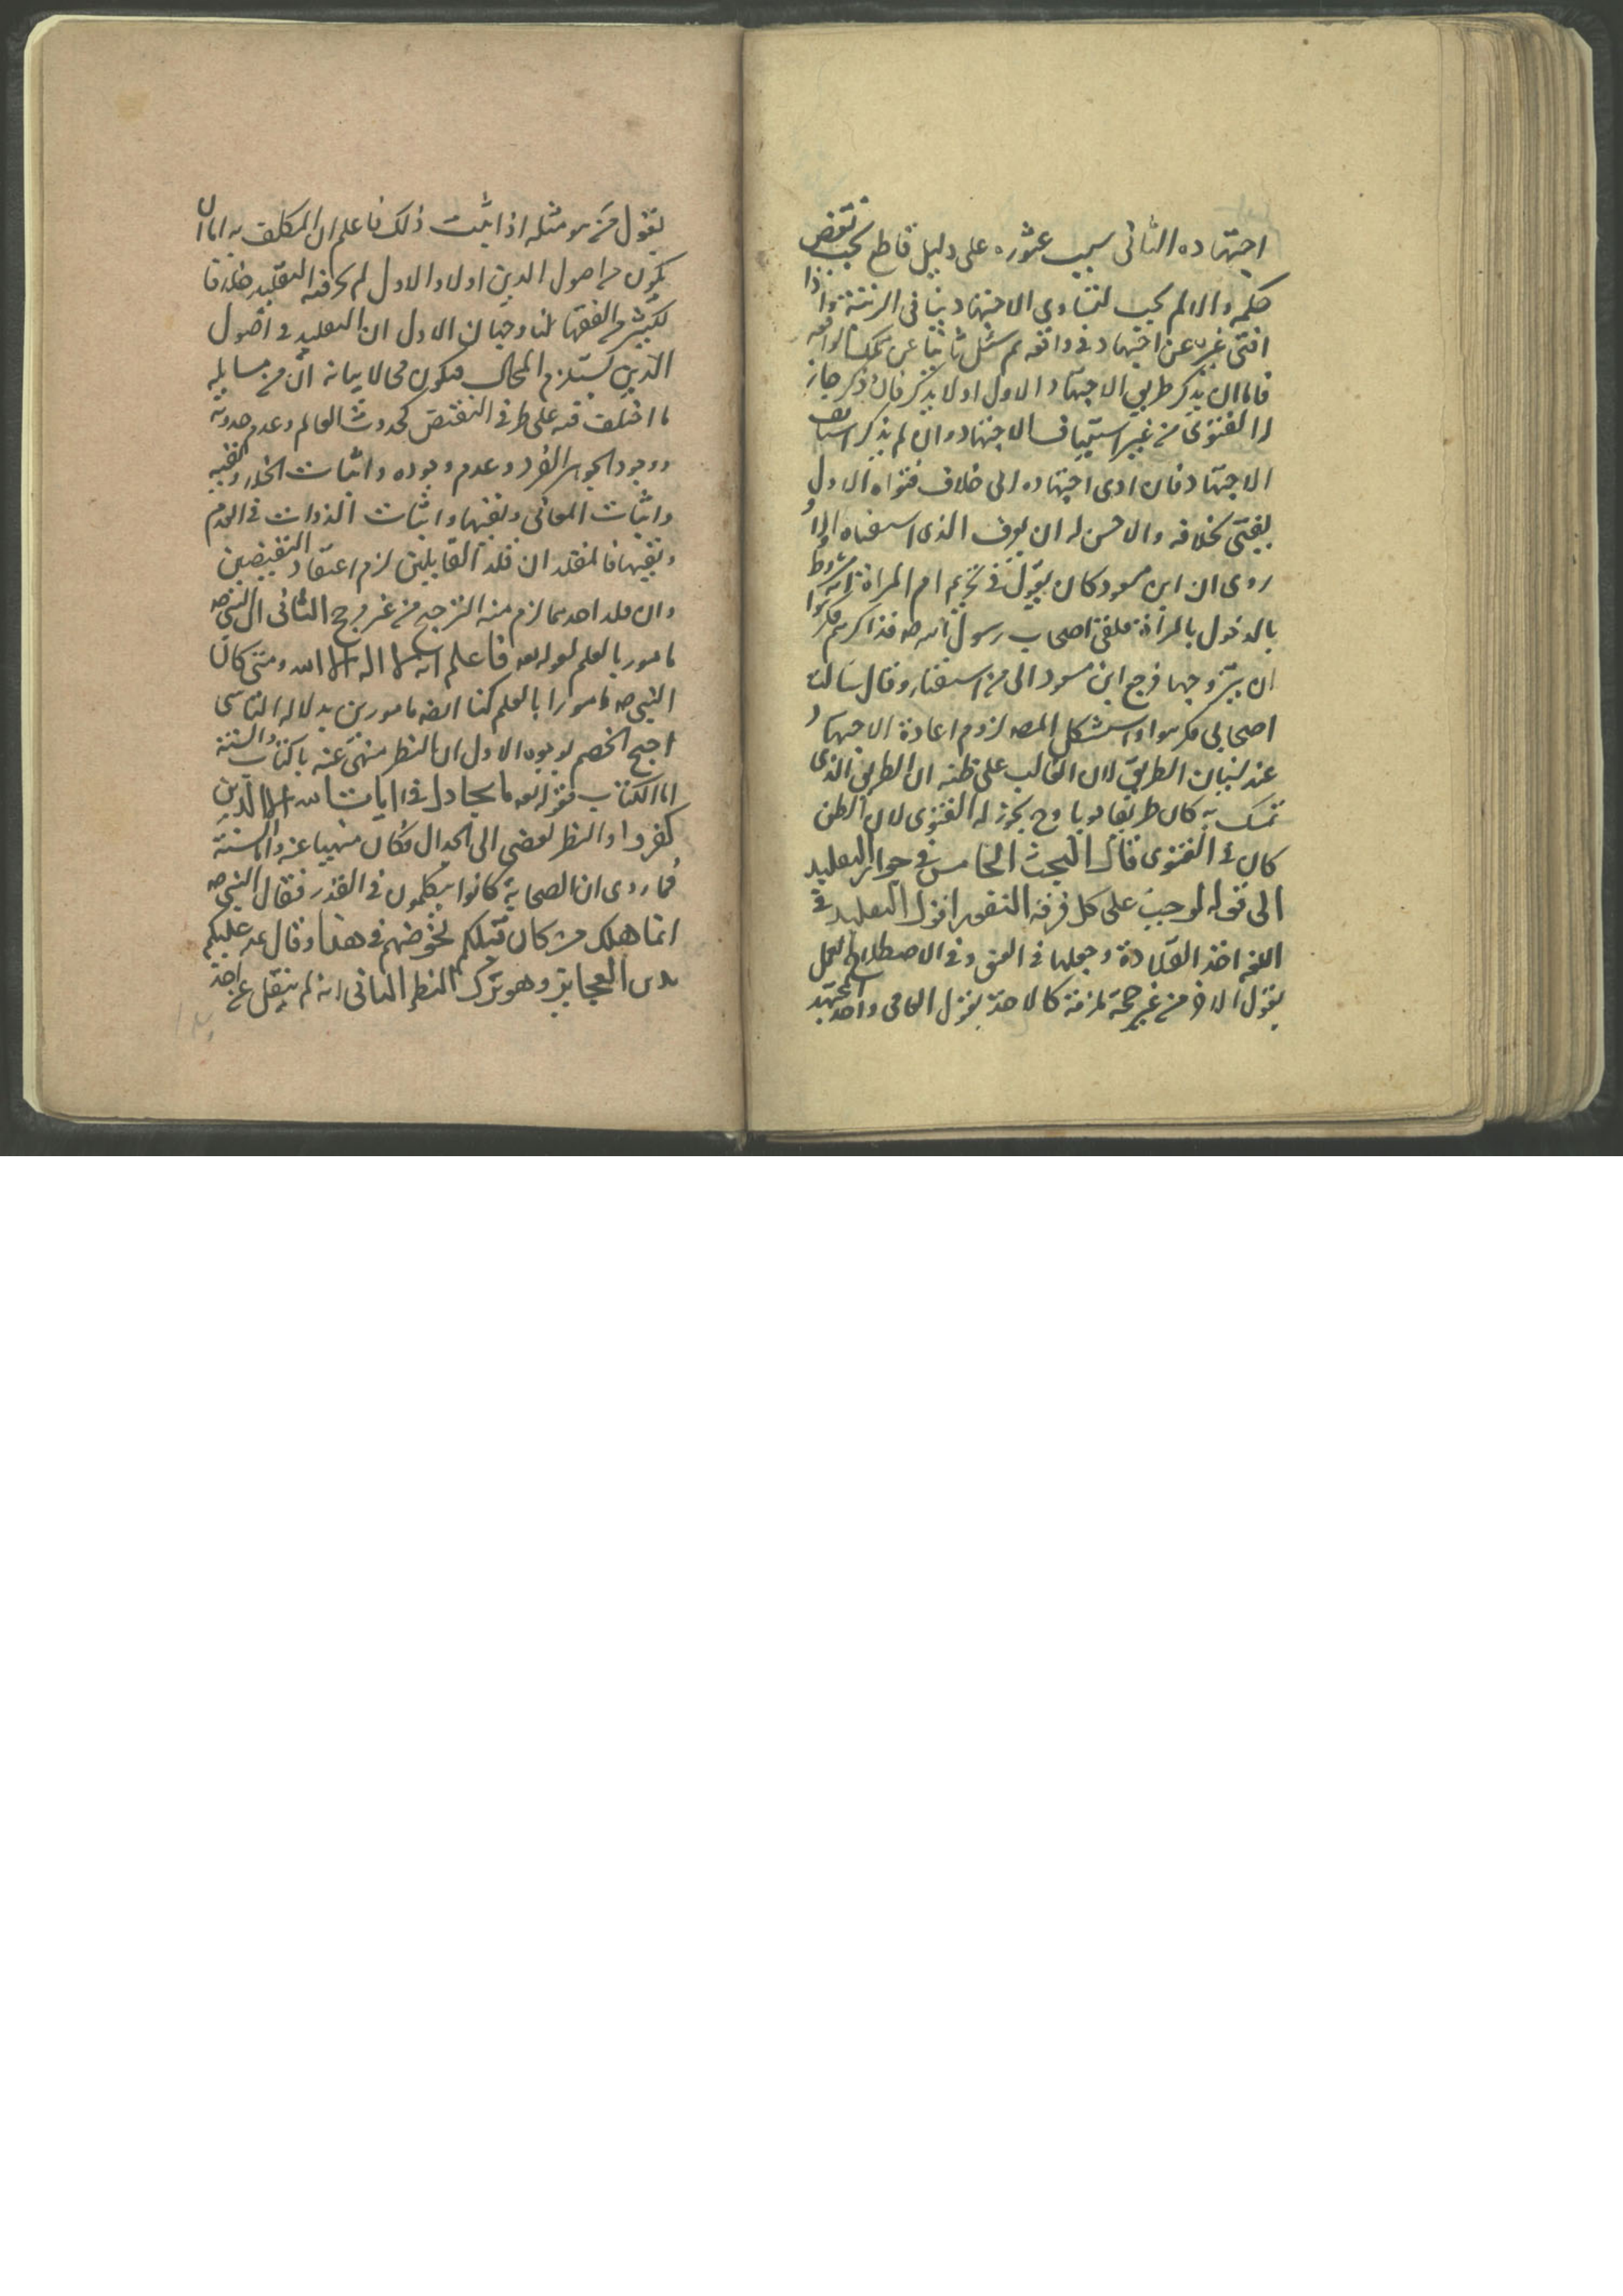 اجتهاده الثانى بسبب عثوره على دليل قاطع يجب نقض
حكمه والا لم يجب لتساوى الاجتهادين فى الرتبة واذا
افتى غيره عن اجتهاد فى واقعه ثم سئل ثانيا عن تلك الواقعه
فاما ان يذكر طريق الاجتهاد الاول اولا يذكر فان ذكر جاز
له الفتوى من غير استيناف الاجتهاد وان لم يذكر استانف
الاجتهاد فان ادى اجتهاده الى خلاف فتواه الاول
يفتى بخلافه والاحسن له ان يعرف الذى استفتاه اولا
روى ان ابن مسعود كان يقول فى تحريم ام المراة انه مشروط
بالدخول بالمرأة فلقى اصحاب رسول الله صه فذاكرهم فكرهوا
ان يتزوجها فرجع ابن مسعود الى من استفتاه وقال سالت
اصحابى فكرهوا واستشكل المصه لزوم اعادة الاجتهاد
عند نسيان الطريق لان الغالب على ظنه ان الطريق الذى
تمسك به كان طريقا قويا وح يجوز له الفتوى لان الظن
كاف فى الفتوى قال البحث الخامس فى جواز التقليد
الى قوله لوجب على كل فرقة النفور اقول التقليد فى
اللغه اخذ القلادة وجعلها فى العنق وفى الاصطلاح العمل
بقول الاخر من غير حجة ملزمة كالاخذ بقول العامى واخذ المجتهد
بقول من هو مثله اذا ثبت ذلك فاعلم ان المكلف به اما ان
يكون من اصول الدين اولا والاول لم يجز فيه التقليد خلافا
لكثير من الفقها لنا وجهان الاول ان التقليد فى اصول
الدين يستلزم المحال فيكون محالا بيانه ان من مسايله
ما اختلف فيه على طرفى النقيض كحدوث العالم وعدم حدوثه
ووجود الجوهر الفرد وعدم وجوده واثبات ونفيه
واثبات المعانى ونفيها واثبات الذوات فى العدم
ونفيها فالمقلد ان قلد القايلين لزم اعتقاد النقيضين
وان قلد احدهما لزم منه الترجيح من غير مرجح الثانى ان النبى صه
مامور بالعلم لقوله تعه فاعلم انه لا اله الا الله ومتى كان
النبى صه مامورا بالعلم كنا ايضه مامورين به لدلاله التاسى
احتج الخصم بوجوه الاول ان النظر منهى عنه بالكتاب والسنة
اما الكتاب فقوله تعه ما يجادل فى ايات الله الا الذين
كفروا والنظر يفضى الى الجدال فكان منهيا عنه واما السنة
فما روى ان الصحابة كانوا يتكلمون فى القدر فقال النبى صه
انما هلك من كان قبلكم بخوضهم فى هذا وقال عه عليكم
بدين العجايز وهو ترك النظر الثانى انه لم ينقل عن احد